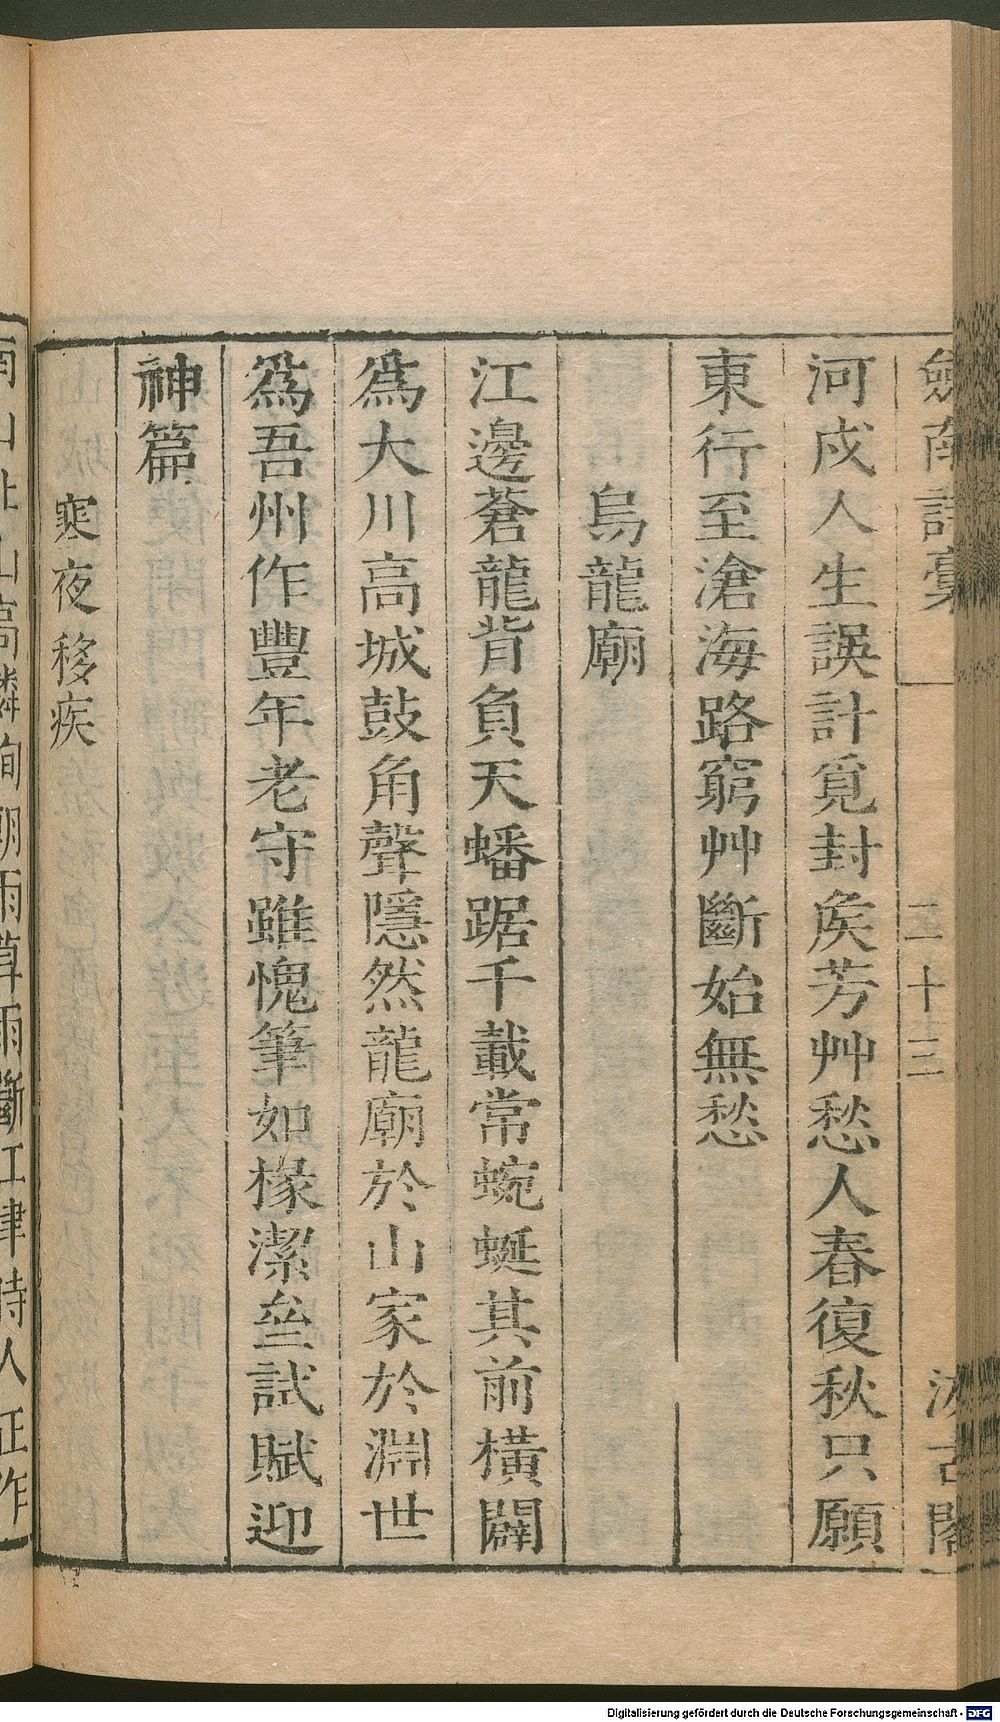 劒南詩藁
二十三
汲古閣
河戍人生誤計覓封矦芳艸愁人春復秋只願
東行至滄海路窮艸斷始無愁
烏龍廟
江邊蒼龍背負天蟠踞千載常蜿蜒其前橫闢
爲大川高城鼓角聲隱然龍廟於山家於淵世
爲吾州作豐年老守雖愧筆如椽潔㕘試賦迎
神篇
寒夜移疾
南山北山高嶙峋朝雨莫雨斷江津詩人正作
Digitalisierung gefördert durch die Deutsche Forschungsgemeinschaft - DFG